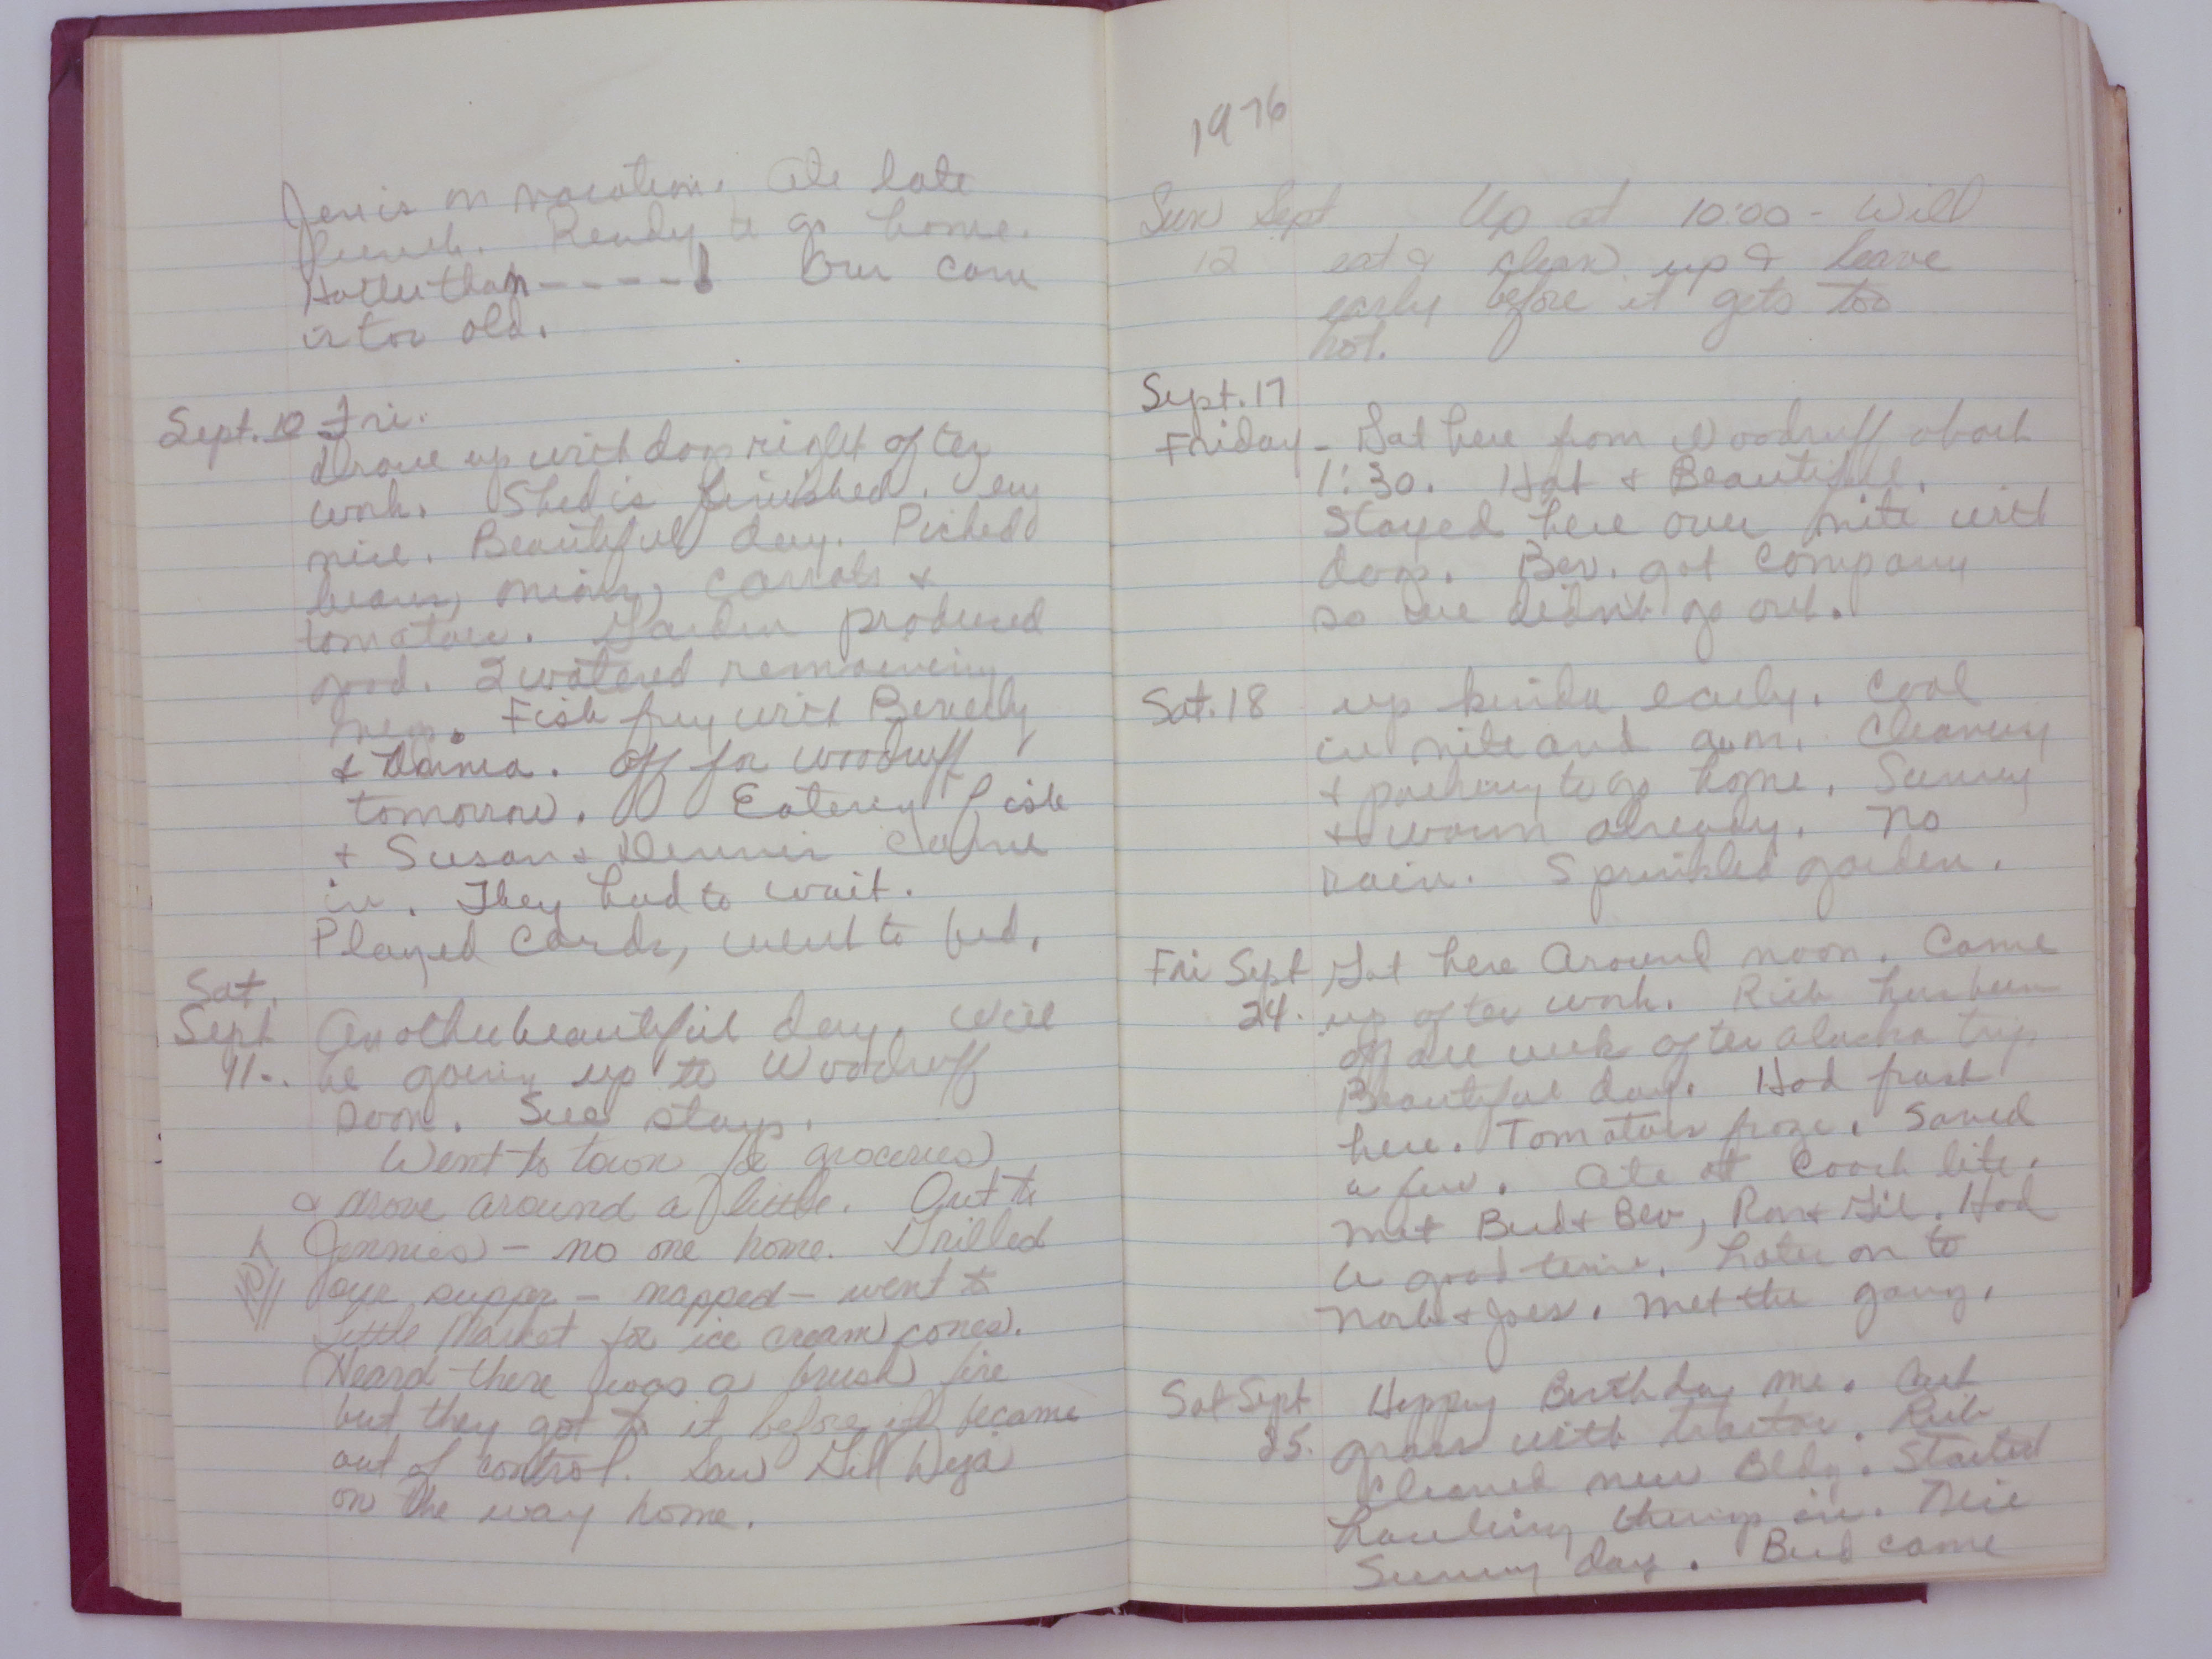 Jen is on vacation. Ate late
lunch. Ready to go home.
Hotter than - - - - - ! Our corn
is too old.
Sept. 10 Fri.
Drove up with dogs right after
work. Shed is finished. Very
nice. Beautiful day. Picked
beans, onions, carrots &
tomatoes. Garden produced
good. I watered remaining
Fish fry with Beverly
& Donna. Off for Woodruff
tomorrow. Eatery fish
& Susan & Dennis came
in. They had to wait.
Played Cards, went to bed.
Sat.
Sept Another beautiful day. Will
11-. be going up to Woodruff
soon. Sue stays.
Went to town for groceries
& drove around a little. Out to
Jennies - no one home. Grilled
our supper - napped - went to
Little Market for ice cream cones.
Heard there was a brush fire
but they got to it before it became
out of control. Saw Gill
on the way home.
1976
Sun Sept Up at 10:00 - Will
12 eat & clean up & leave
early before it gets too
hot.
Sept. 17
Friday - Got here from Woodruff about
1:30. Hot & Beautiful.
Stayed here over nite with
dogs. Bev. got company
so we didn't go out.
Sat. 18 up kinda early. Cool
in nite and a.m. Cleaning
& packing to go home. Sunny
& warm already. No
rain. Sprinkled garden.
Fri Sept Got here Around noon. Came
24. up after work. Rich has been
off all week after Alaska trip
Beautiful day. Had frost
here. Tomatoes froze. Saved
a few. Ate at Coach lite.
Met Bud & Bev, Ron & Gil. Had
a good time. Later on to
Norb & Joes. Met the gang.
Sat Sept Happy Birthday me. Cut
25. grass with tractor. Rich
cleaned new Bldg. Started
hauling things in. Nice
Sunny day. Bud came